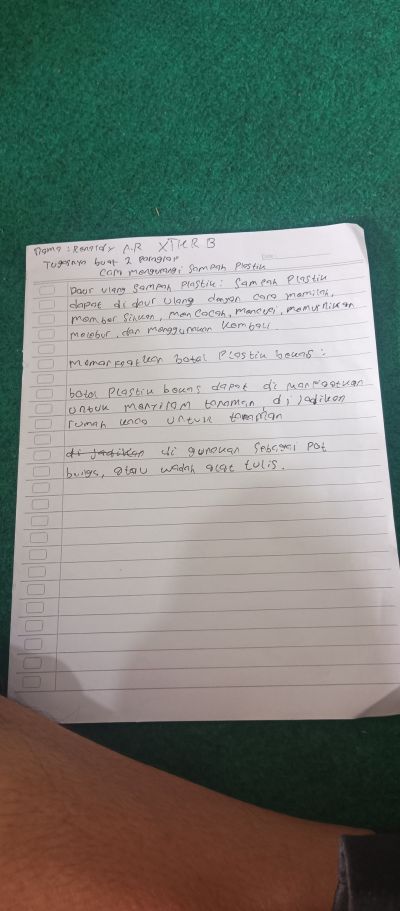 Nama : Renaldy A.R XTKR B
Tugasnya buat 2 paragrap
Cara mengurangi Sampah Plastik
Daur ulang Sampah Plastik : Sampah Plastik
dapat di daur ulang dengan cara memilah,
member Sihkan, mencacah, mencuci, memurnikan
melebur, dan menggunakan kembali
Memanfaatkan botol Plastik bekas :
botol Plastik bekas dapat di manfaatkan
untuk menyiram tanaman, di jadikan
rumah kaca untuk tanaman
di jadikan di gunakan Sebagai Pot
bunga, atau wadah alat tulis.